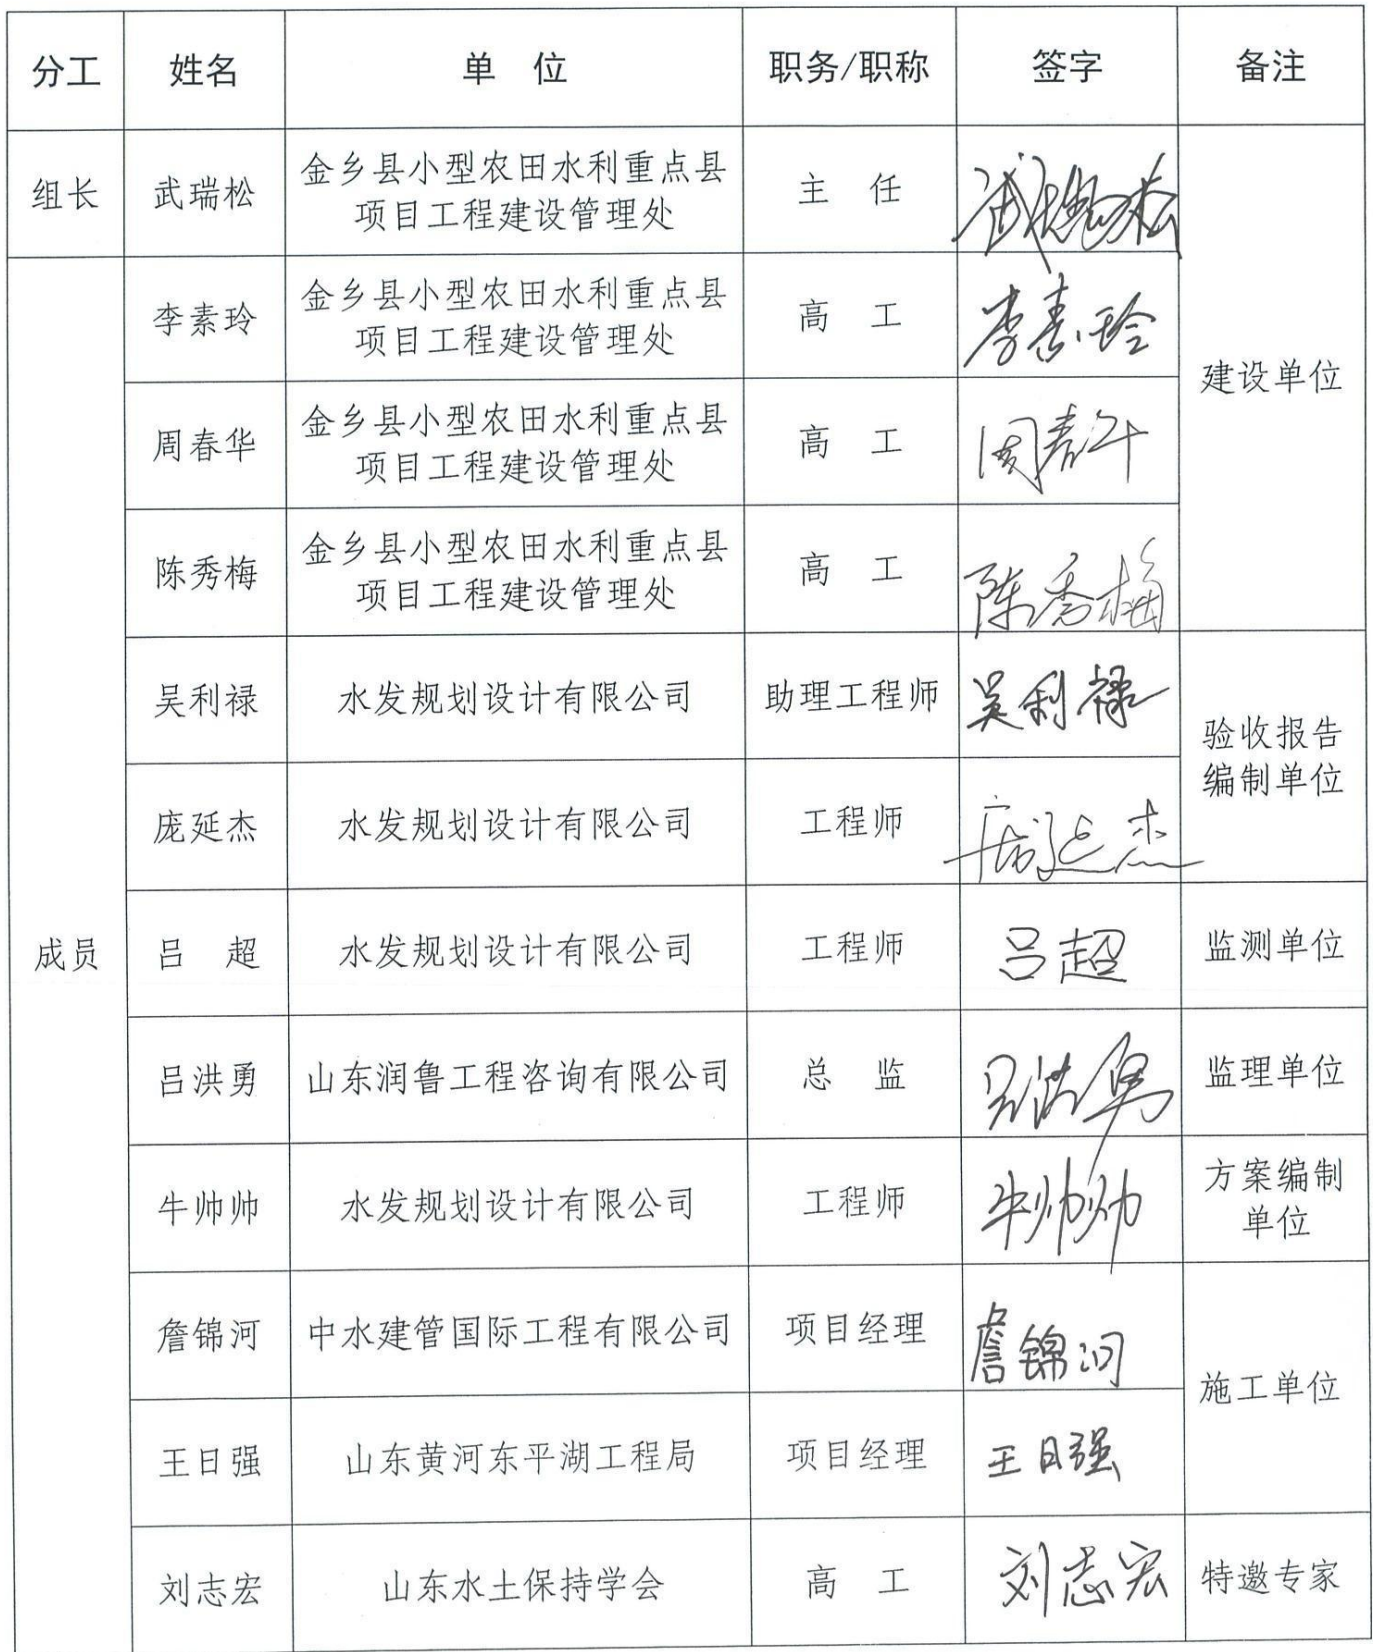 分工 姓名 单 位 职务/职称 签字 备注
组长 武瑞松 金乡县小型农田水利重点县 主 任 武瑞松
项目工程建设管理处
李素玲 金乡县小型农田水利重点县 高 工 李素玲
项目工程建设管理处
建设单位
周春华 金乡县小型农田水利重点县 高 工 周春华
项目工程建设管理处
陈秀梅 金乡县小型农田水利重点县 高 工 陈秀梅
项目工程建设管理处
吴利禄 水发规划设计有限公司 助理工程师 吴利禄
验收报告
编制单位
庞延杰 水发规划设计有限公司 工程师 庞延杰
成员 吕 超 水发规划设计有限公司 工程师 吕超 监测单位
吕洪勇 山东润鲁工程咨询有限公司 总 监 吕洪勇 监理单位
牛帅帅 水发规划设计有限公司 工程师 牛帅帅 方案编制
单位
詹锦河 中水建管国际工程有限公司 项目经理 詹锦河
施工单位
王日强 山东黄河东平湖工程局 项目经理 王日强
刘志宏 山东水土保持学会 高 工 刘志宏 特邀专家